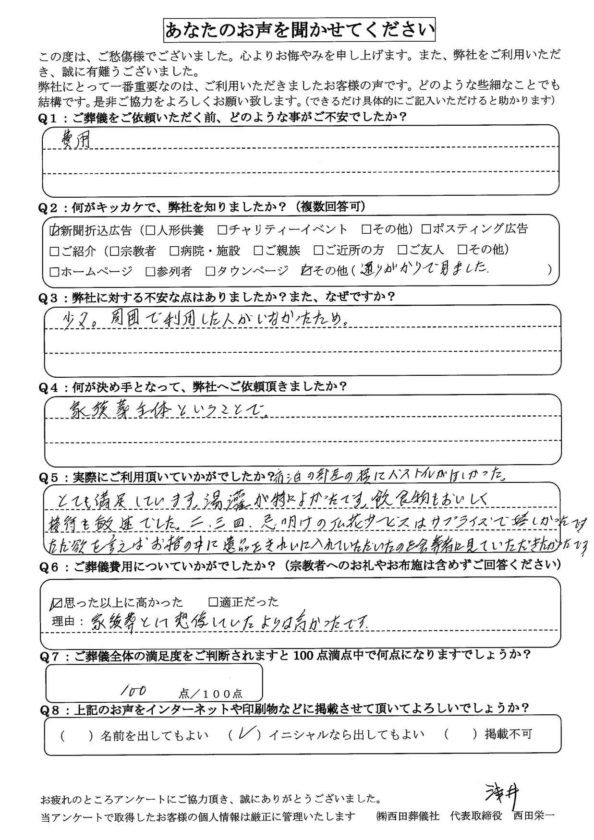 あなたのお声を聞かせてください
この度は、ご愁傷様でございました。心よりお悔やみを申し上げます。また、弊社をご利用いただ
き、誠に有難うございました。
弊社にとって一番重要なのは、ご利用いただきましたお客様の声です。どのような些細なことでも
結構です。是非ご協力をよろしくお願い致します。（できるだけ具体的にご記入いただけると助かります）
Q1：ご葬儀をご依頼いただく前、どのような事がご不安でしたか？
費用
Q2：何がキッカケで、弊社を知りましたか？（複数回答可）
☑新聞折込広告（□人形供養 □チャリティーイベント □その他）□ポスティング広告
□ご紹介（□宗教者 □病院・施設 □ご親族 □ご近所の方 □ご友人 □その他）
□ホームページ □参列者 □タウンページ ☑その他（通りがかりで見ました。）
Q3：弊社に対する不安な点はありましたか？また、なぜですか？
少々。周囲で利用した人がいなかったため。
Q4：何が決め手となって、弊社へご依頼頂きましたか？
家族葬主体ということで。
Q5：実際にご利用頂いていかがでしたか？宿泊の部屋の様にバストイレがほしかった。
とても満足しています。湯灌が特によかったです。飲食物もおいしく
接待も敏速でした。二、三四、忌明けの仏花サービスはサプライズで嬉しかったです
ただ欲を言えばお棺の中に遺品をきれいに入れていただいたのを会葬者に見ていただきたかったです
Q6：ご葬儀費用についていかがでしたか？（宗教者へのお礼やお布施は含めずご回答ください）
☑思った以上に高かった □適正だった
理由：家族葬として想像していたよりは高かったです。
Q7：ご葬儀全体の満足度をご判断されますと100点満点中で何点になりますでしょうか？
100 点／100点
Q8：上記のお声をインターネットや印刷物などに掲載させて頂いてよろしいでしょうか？
（ ）名前を出してもよい （✓）イニシャルなら出してもよい （ ）掲載不可
浅井
お疲れのところアンケートにご協力頂き、誠にありがとうございました。
当アンケートで取得したお客様の個人情報は厳正に管理いたします ㈱西田葬儀社 代表取締役 西田栄一